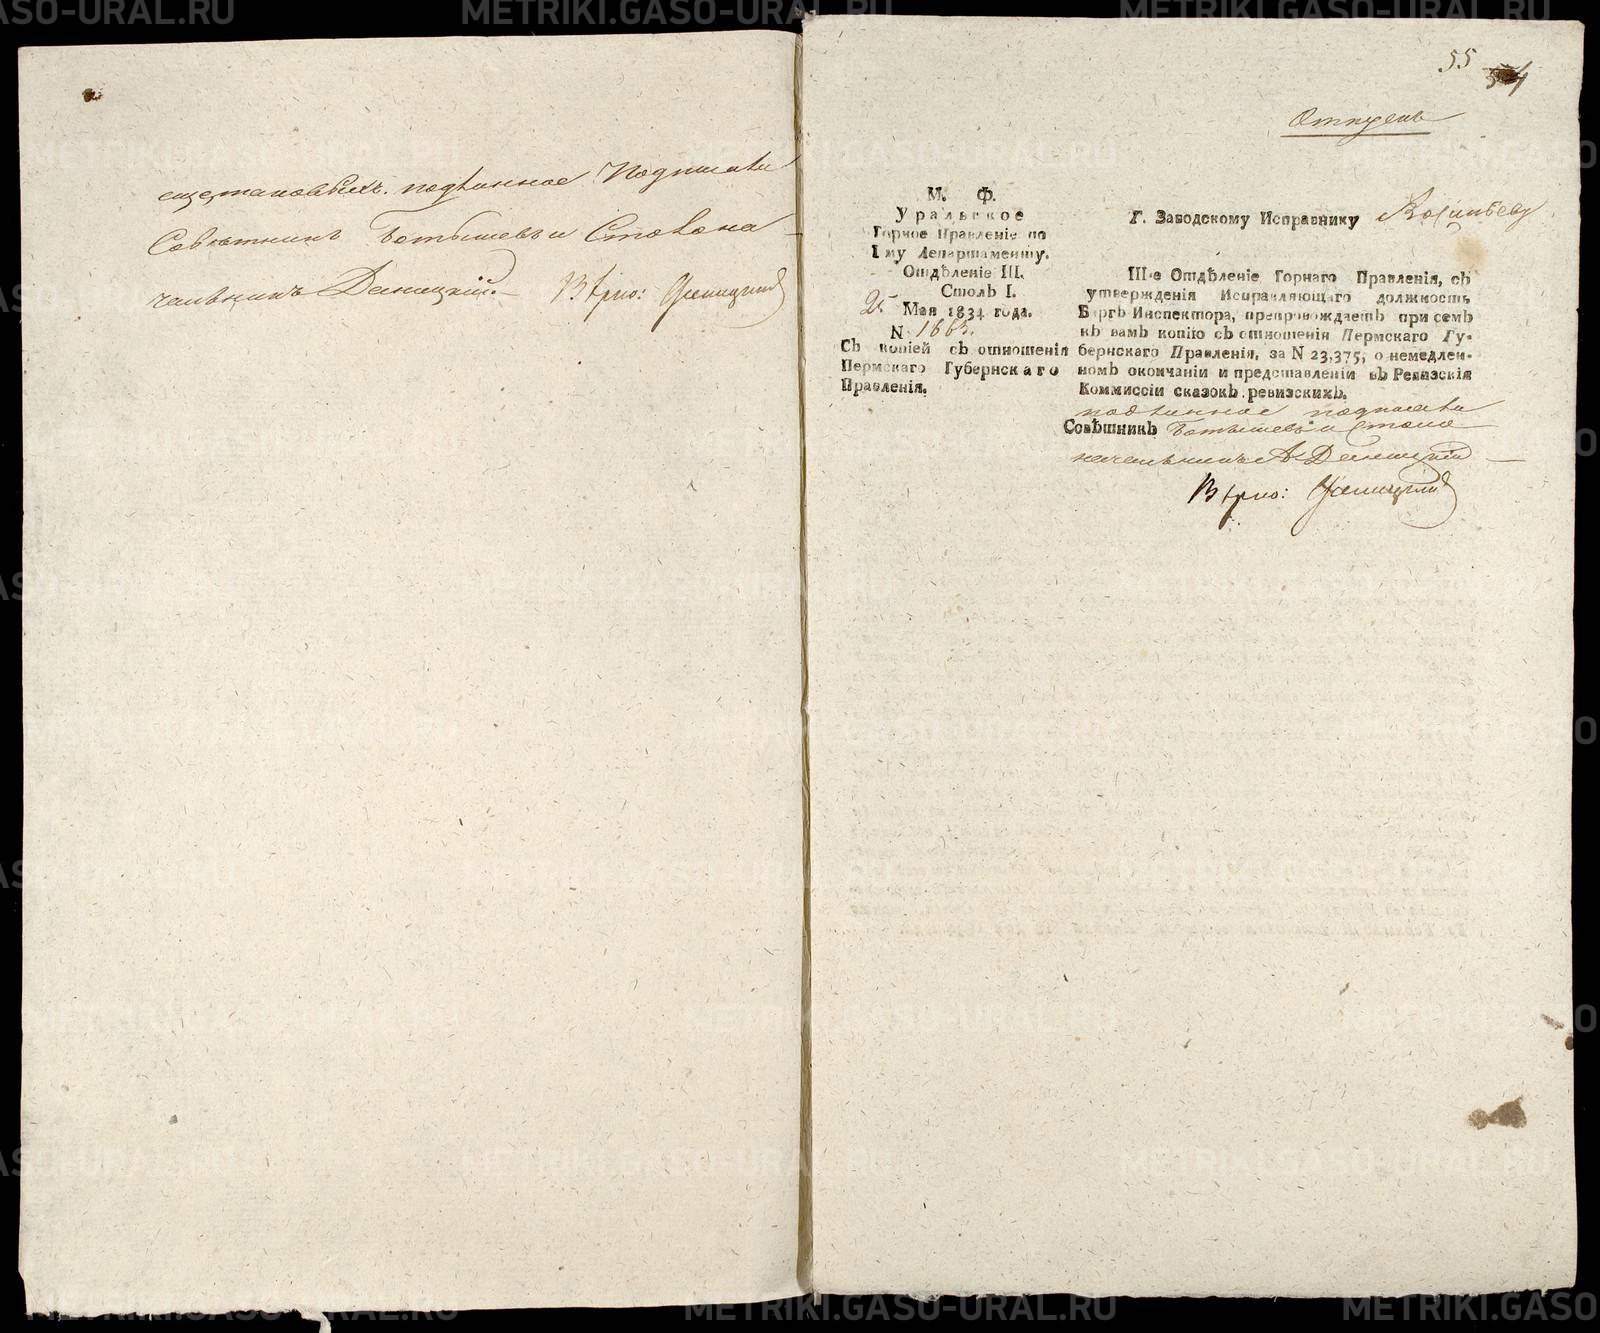 подлинное Подписали
Советникъ и Столона-
чальникъ
55
54
Отпускъ
М. Ф.
Уральское
Горное Правленіе по
I му Департаменту.
Отдѣленіе III.
Столъ I.
25 Мая 1834 года.
N 1663.
Съ копіей съ отношенія
Пермскаго Губернскаго
Правленія.
Г. Заводскому Исправнику
III-е Отдѣленіе Горнаго Правленія, съ
утвержденія Исправляющаго должность
Бергъ Инспектора, препровождаетъ при семъ
къ вамъ копію съ отношенія Пермскаго Гу-
бернскаго Правленія, за N 23,375, о немедлен-
номъ окончаніи и представленіи въ Ревизскія
Коммиссіи сказокъ ревизскихъ.
подлинное подписали
Совѣтникъ и Столо-
начальникъ
METRIKI.GASO-URAL.RU